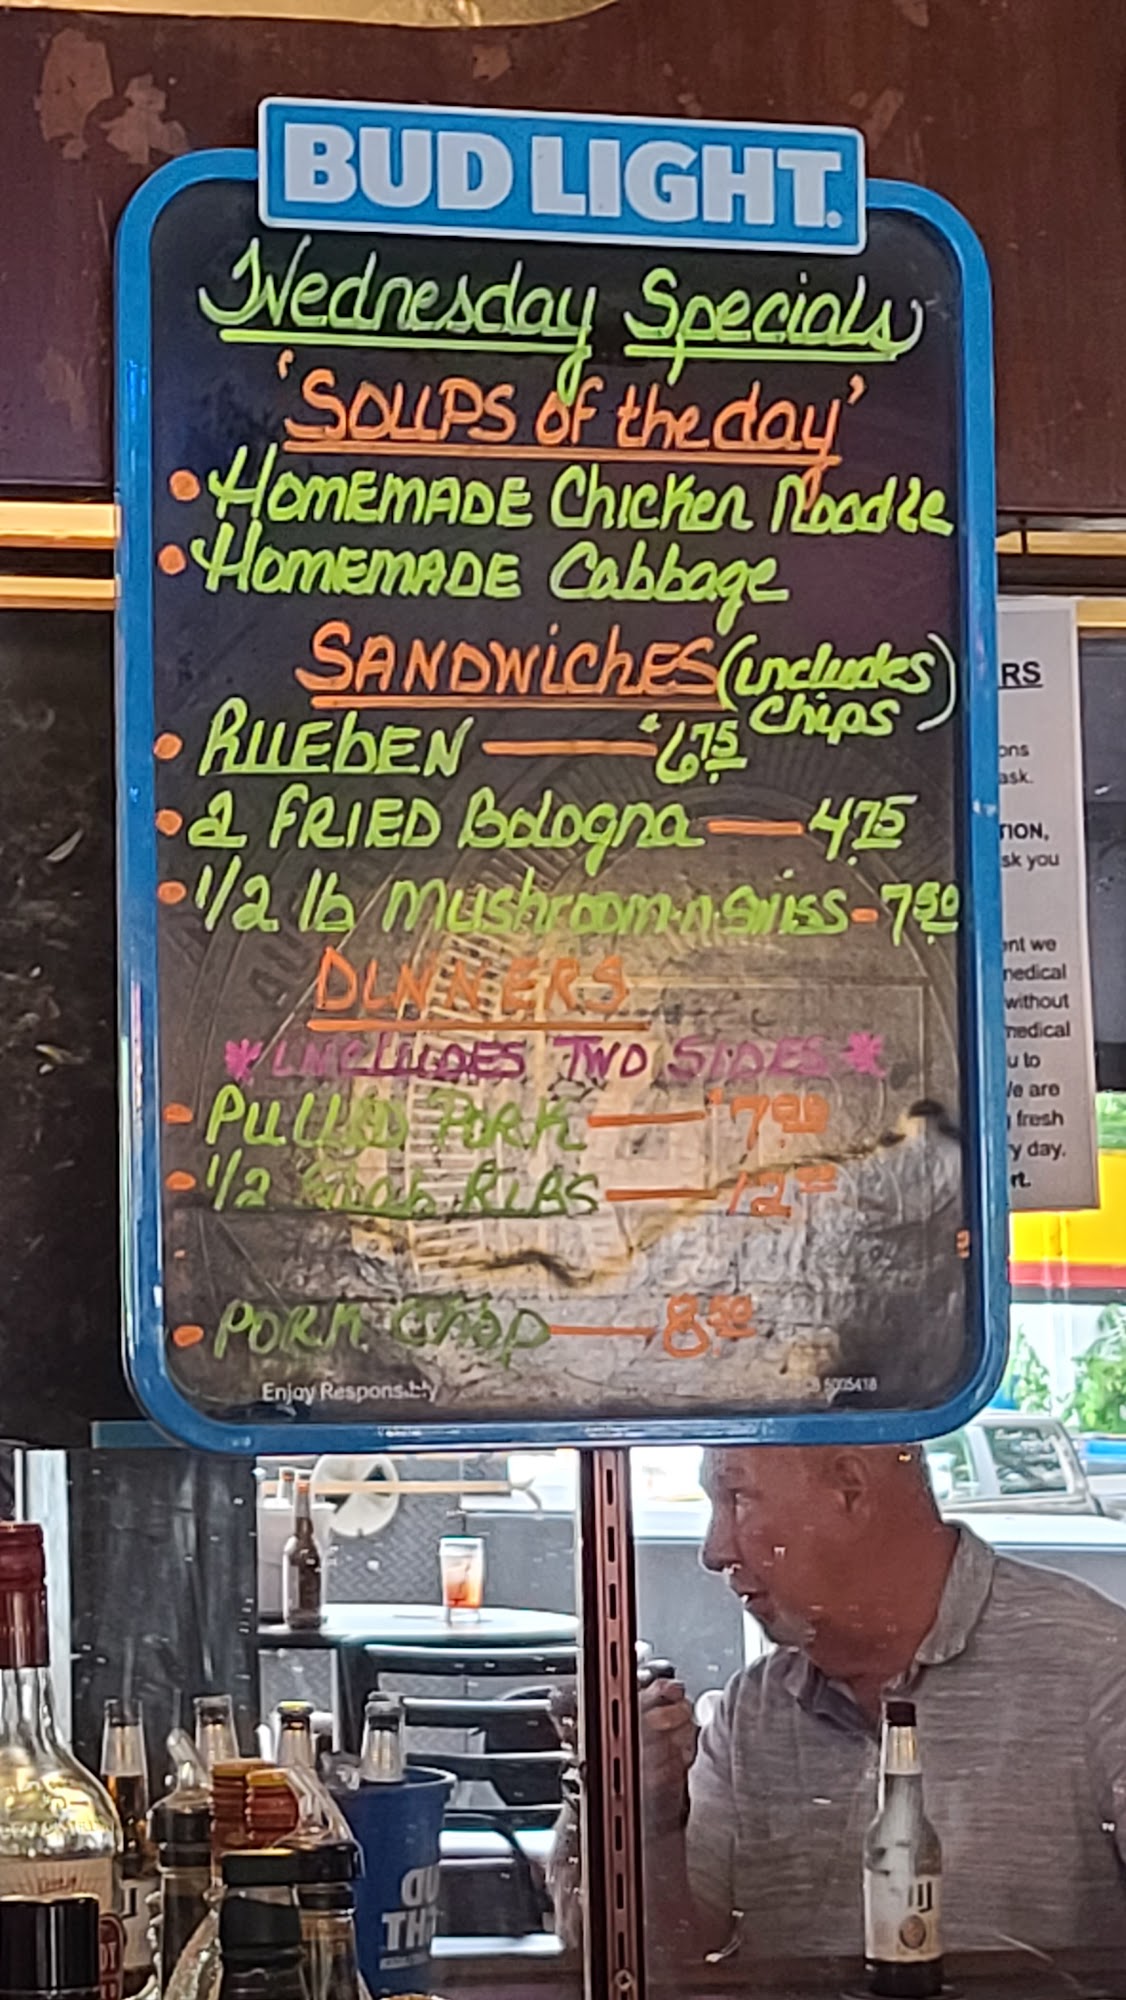 BUD LIGHT.
Wednesday Specials
'SOUPS of the day'
• HOMEMADE Chicken Noodle
• HOMEMADE Cabbage
SANDWICHES (includes
chips)
• RUEBEN — $6.75
• 2 FRIED Bologna — 4.75
• 1/2 lb Mushroom-n-Swiss - 7.50
DINNERS
* INCLUDES TWO SIDES *
- PULLED PORK — $7.00
- 1/2 Slab RIBS — 12.00
- PORK Chop — 8.50
Enjoy Responsibly
RS
ons
ask.
TION,
sk you
ent we
medical
without
medical
u to
We are
fresh
y day.
rt.